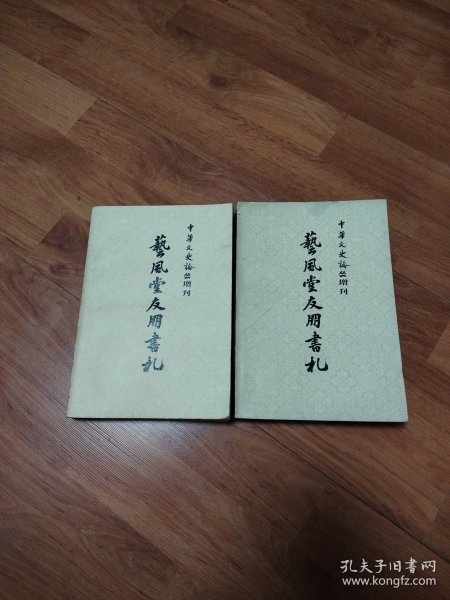 中華文史論丛增刊
藝風堂友朋書札
中華文史論丛增刊
藝風堂友朋書札
孔夫子旧书网
www.kongfz.com